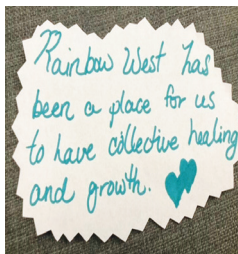 Rainbow West has
been a place for us
to have collective healing
and growth.